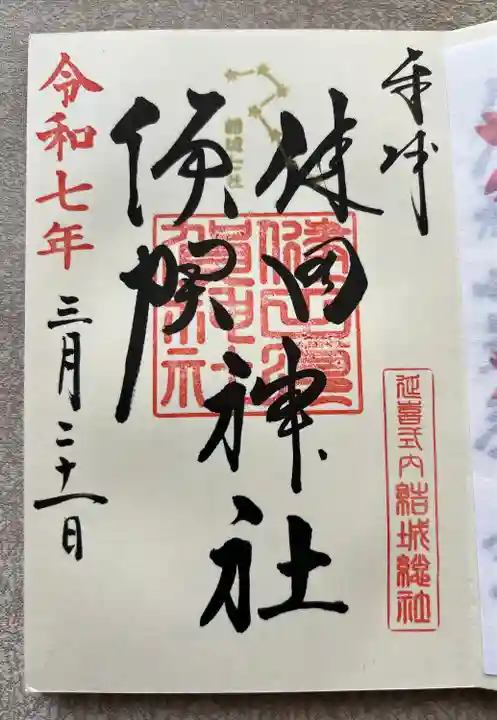 奉拝
延喜式内 結城総社
健田
須賀
神社
健田須
賀神社
令和七年
三月二十一日